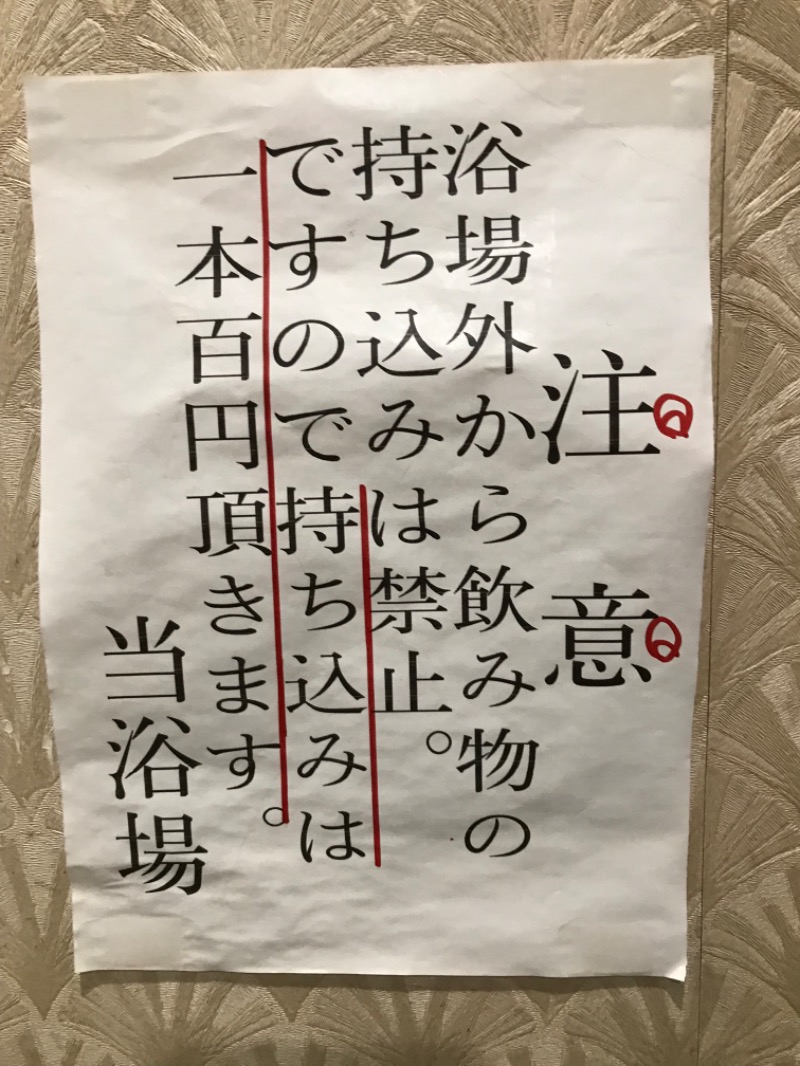 注意
浴場外から飲み物の
持ち込みは禁止。
ですので持ち込みは
一本百円頂きます。
当浴場